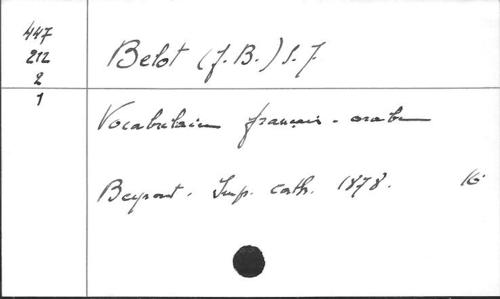 447
212
2
1
Belot (J. B.) S. J
Vocabulaire français - arabe
Beyrout. Imp. cath. 1878. 16